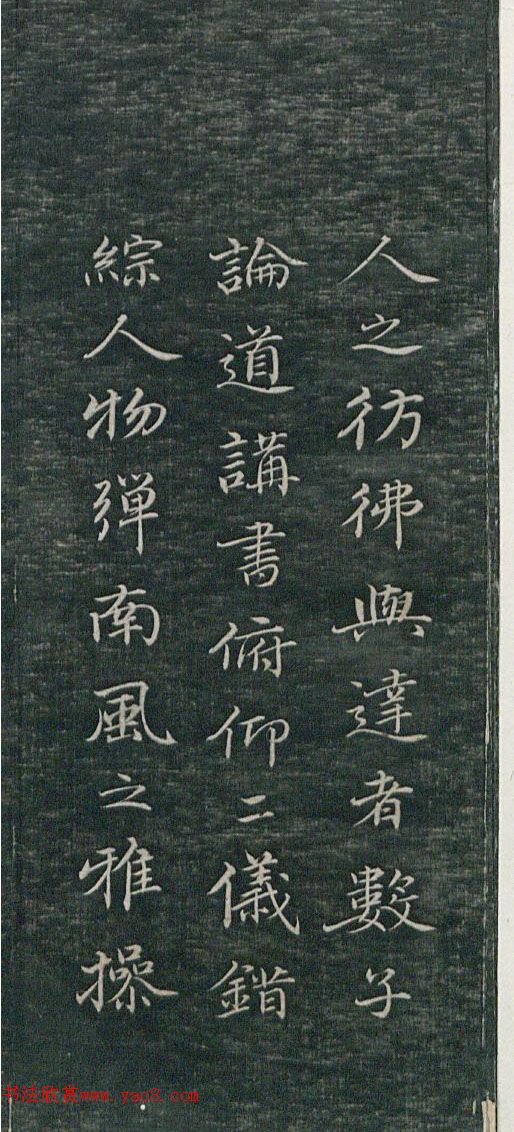 人之彷彿與達者數子
論道講書俯仰二儀錯
綜人物弹南風之雅操
书法欣赏www.yac8.com